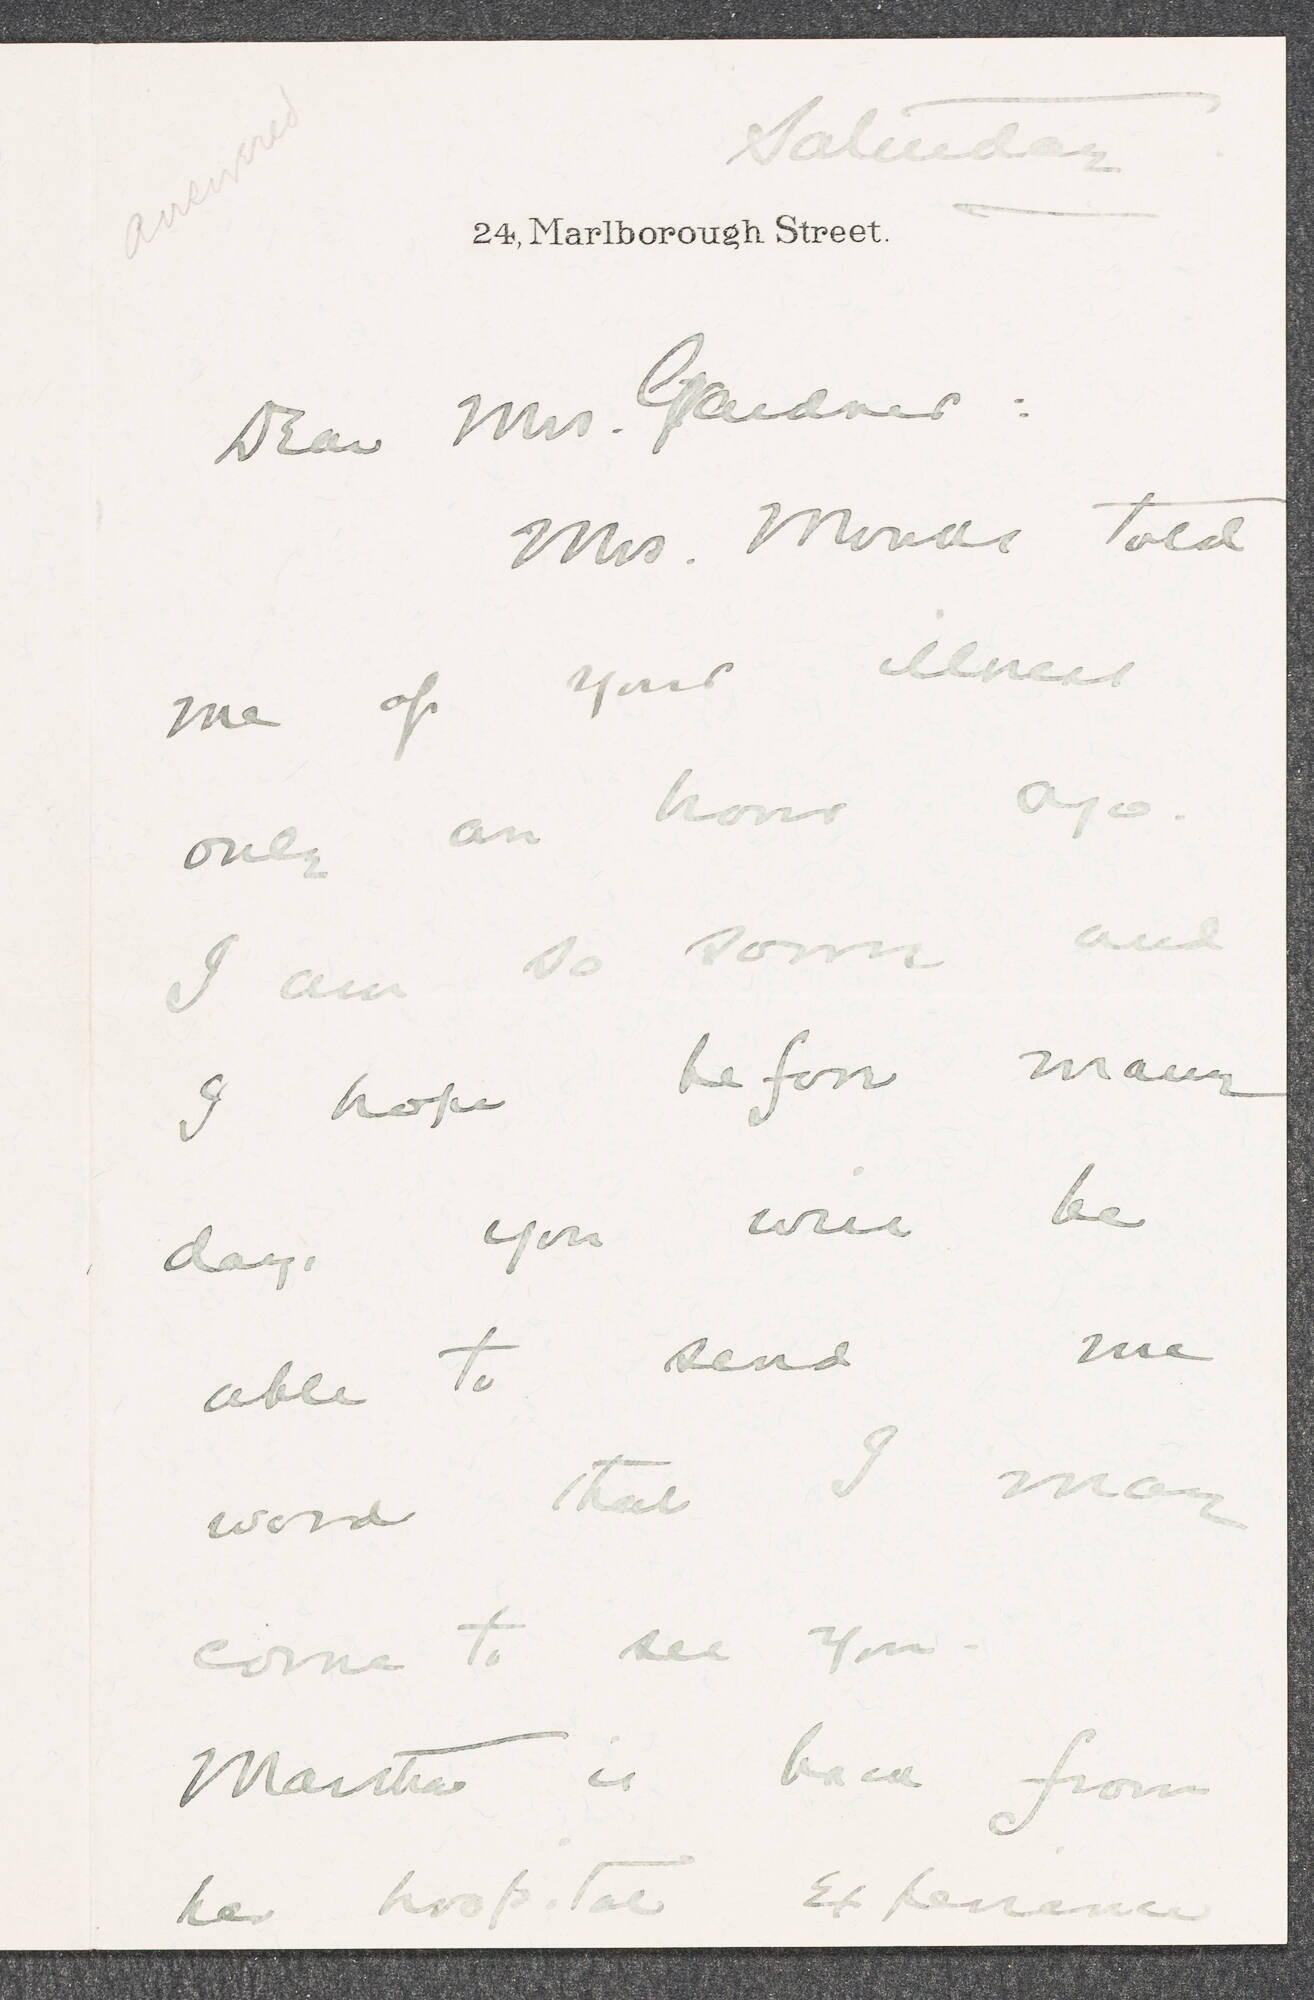 answered
Saturday
24, Marlborough Street.
Dear Mrs. Gardner:
Mrs. Monks told
me of your illness
only an hour ago.
I am so sorry and
I hope before many
days you will be
able to send me
word that I may
come to see you.
Martha is back from
her hospital experience